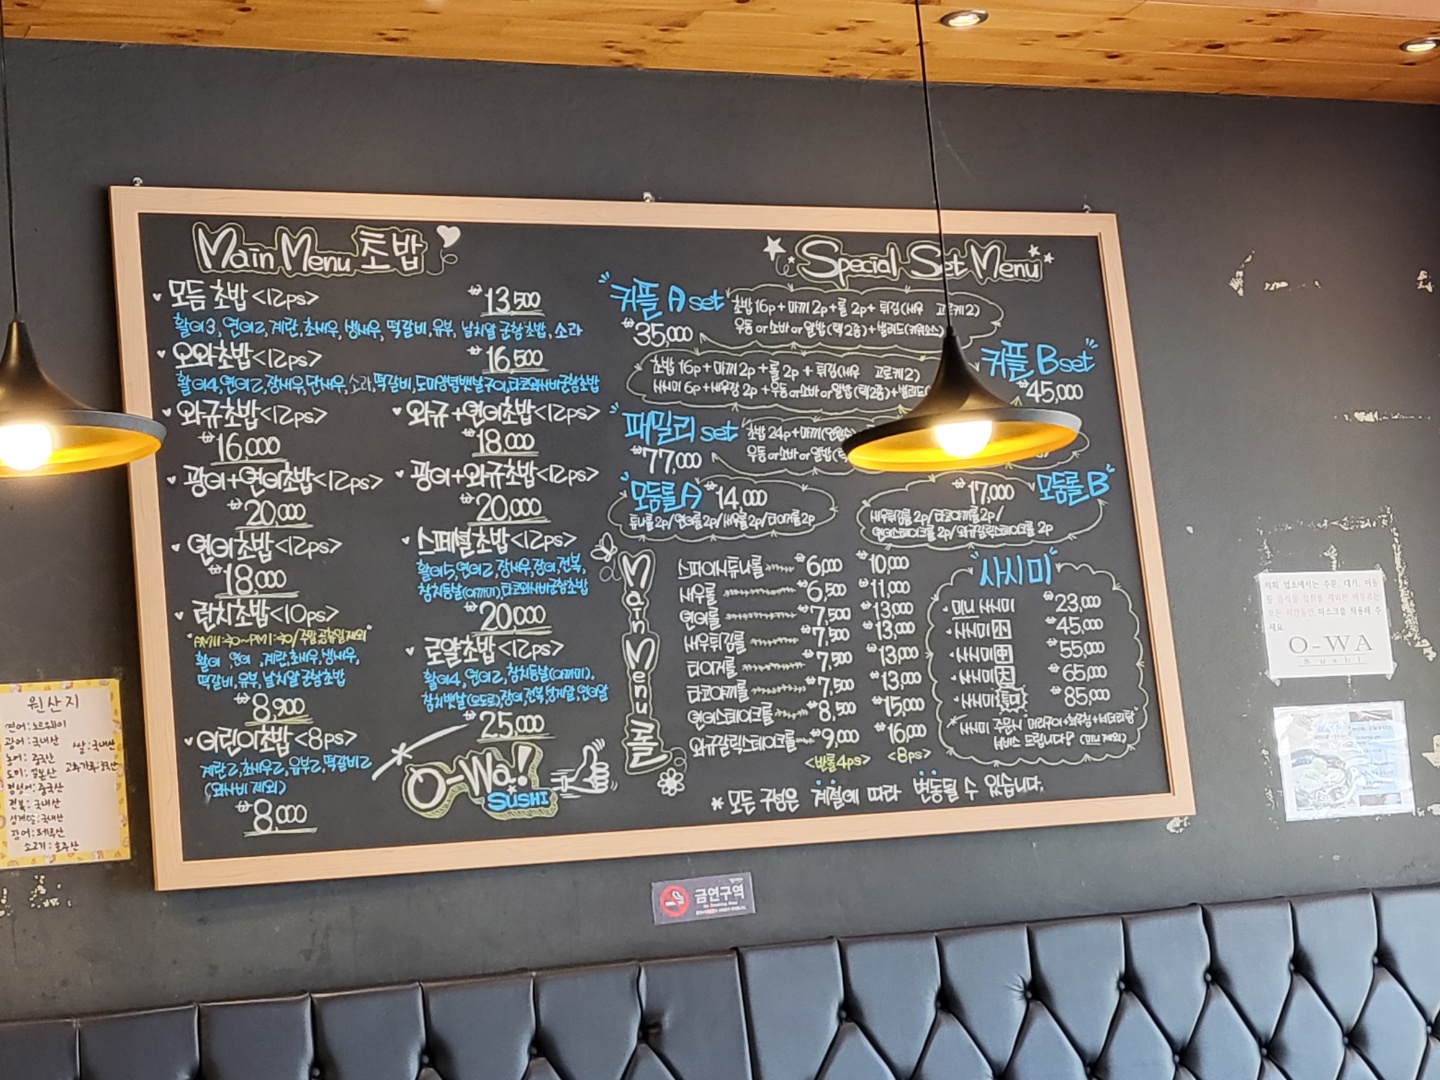 Main Menu 초밥
모듬 초밥 <12ps> ₩13,500
활어3, 연어2, 계란, 초새우, 생새우, 떡갈비, 유부, 날치알 군함초밥, 소라
오와초밥 <12ps> ₩16,500
활어4, 연어2, 장새우, 단새우, 소라, 떡갈비, 도미양념뱃살구이, 타코와사비군함초밥
와규초밥 <12ps>
₩16,000
와규+연어초밥 <12ps>
₩18,000
광어+연어초밥 <12ps>
₩20,000
광어+와규초밥 <12ps>
₩20,000
연어초밥 <12ps>
₩18,000
스페셜초밥 <12ps>
활어5, 연어2, 장새우, 장어, 전복,
참치등살(아까미), 타코와사비군함초밥
₩20,000
런치초밥 <10ps>
활어 연어 , 계란, 초새우, 생새우,
떡갈비, 유부, 날치알 군함초밥
₩8,900
로얄초밥 <12ps>
활어4, 연어2, 참치등살(아까미),
참치뱃살(오도로), 장어, 전복, 성게알, 연어알
₩25,000
어린이초밥 <8ps>
계란2, 초새우2, 유부2, 떡갈비2
(와사비 제외)
₩8,000
O-Wa!
SUSHI
Special Set Menu
"커플 A set"
₩35,000
초밥 16p + 마끼 2p + 롤 2p + 튀김(새우 고로케2)
우동 or 소바 or 알밥 (택2종) + 샐러드
"커플 B set"
₩45,000
초밥 16p + 마끼 2p + 롤 2p + 튀김(새우 고로케2)
사시미 6p + 새우장 2p + 우동 or 소바 or 알밥 (택2종) +
"패밀리 set"
₩77,000
초밥 24p + 마끼
우동 or 소바 or 알밥
"모듬롤 A" ₩14,000
튜나롤 2p / 연어롤 2p / 새우롤 2p / 타이거롤 2p
₩17,000 모듬롤 B"
새우튀김롤 2p / 타코야끼롤 2p /
연어스테이크롤 2p / 와규갈릭스테이크롤 2p
Main Menu 롤
스파이시튜나롤 ₩6,000 ₩10,000
새우롤 ₩6,500 ₩11,000
연어롤 ₩7,500 ₩13,000
새우튀김롤 ₩7,500 ₩13,000
타이거롤 ₩7,500 ₩13,000
타코야끼롤 ₩7,500 ₩13,000
연어스테이크롤 ₩8,500 ₩15,000
와규갈릭스테이크롤 ₩9,000 ₩16,000
<반롤4ps> <8ps>
"사시미"
미니 사시미 ₩23,000
사시미 小 ₩45,000
사시미 中 ₩55,000
사시미 大 ₩65,000
사시미 특대 ₩85,000
* 사시미 주문시
서비스 드립니다 (미니 제외)
* 모든 구성은 계절에 따라 변동될 수 있습니다.
원산지
연어: 노르웨이
광어: 국내산
쌀: 국내산
농어: 중국산
도미: 일본산
점성어: 중국산
전복: 국내산
성게알: 국내산
장어: 페루산
소고기: 호주산
금연구역
No Smoking Area
저희 업소에서는 주문, 대기, 이동
등 음식물 섭취를 제외한 머무르는
모든 시간동안 마스크를 착용해 주
세요.
O-WA
Sushi